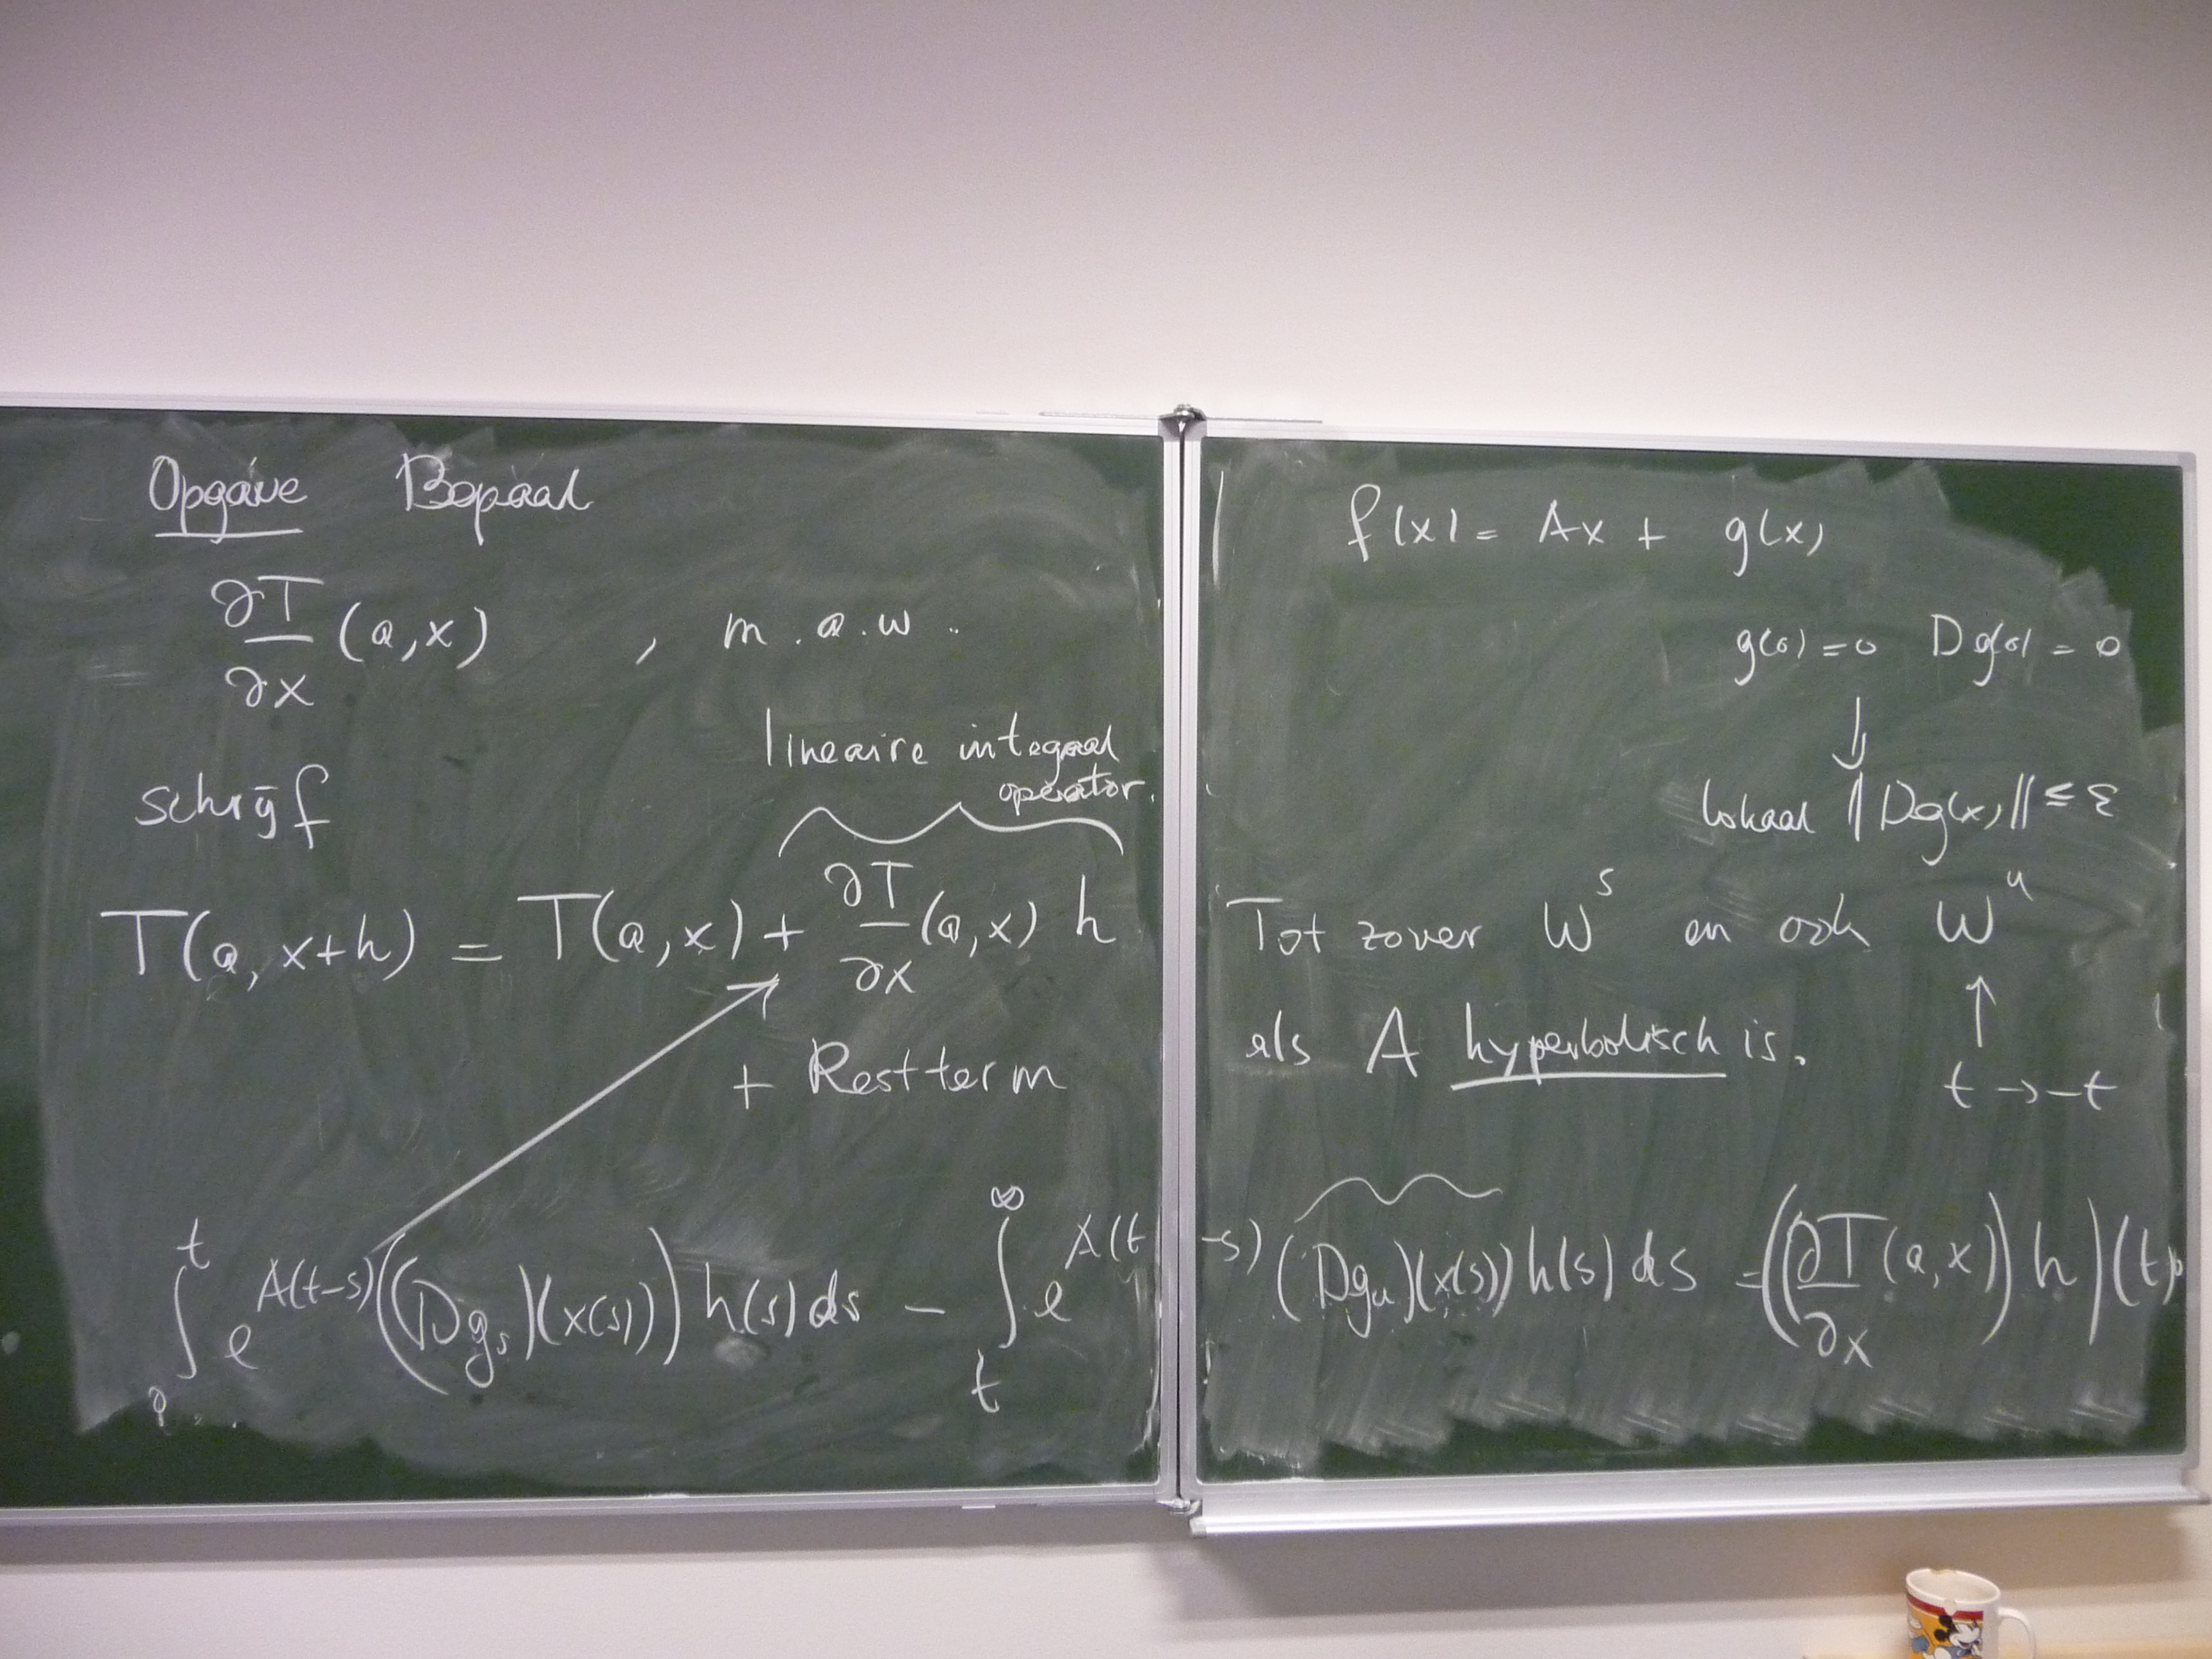 Opgave Bepaal
∂T/∂x (a,x) , m.a.w.
lineaire integraal
operator.
schrijf
T(a, x+h) = T(a,x) + ∂T/∂x (a,x) h
+ Restterm
∫₀ᵗ e^{A(t-s)} ((Dg_s)(x(s))) h(s) ds - ∫_t^∞ e^{A(t-s)} (Dg_u)(x(s)) h(s) ds = ((∂T/∂x (a,x)) h)(t)
f(x) = Ax + g(x)
g(0) = 0 Dg(0) = 0
↓
lokaal ||Dg(x)|| ≤ ε
Tot zover W^s en ook W^u
↑
als A hyperbolisch is.
t → -t